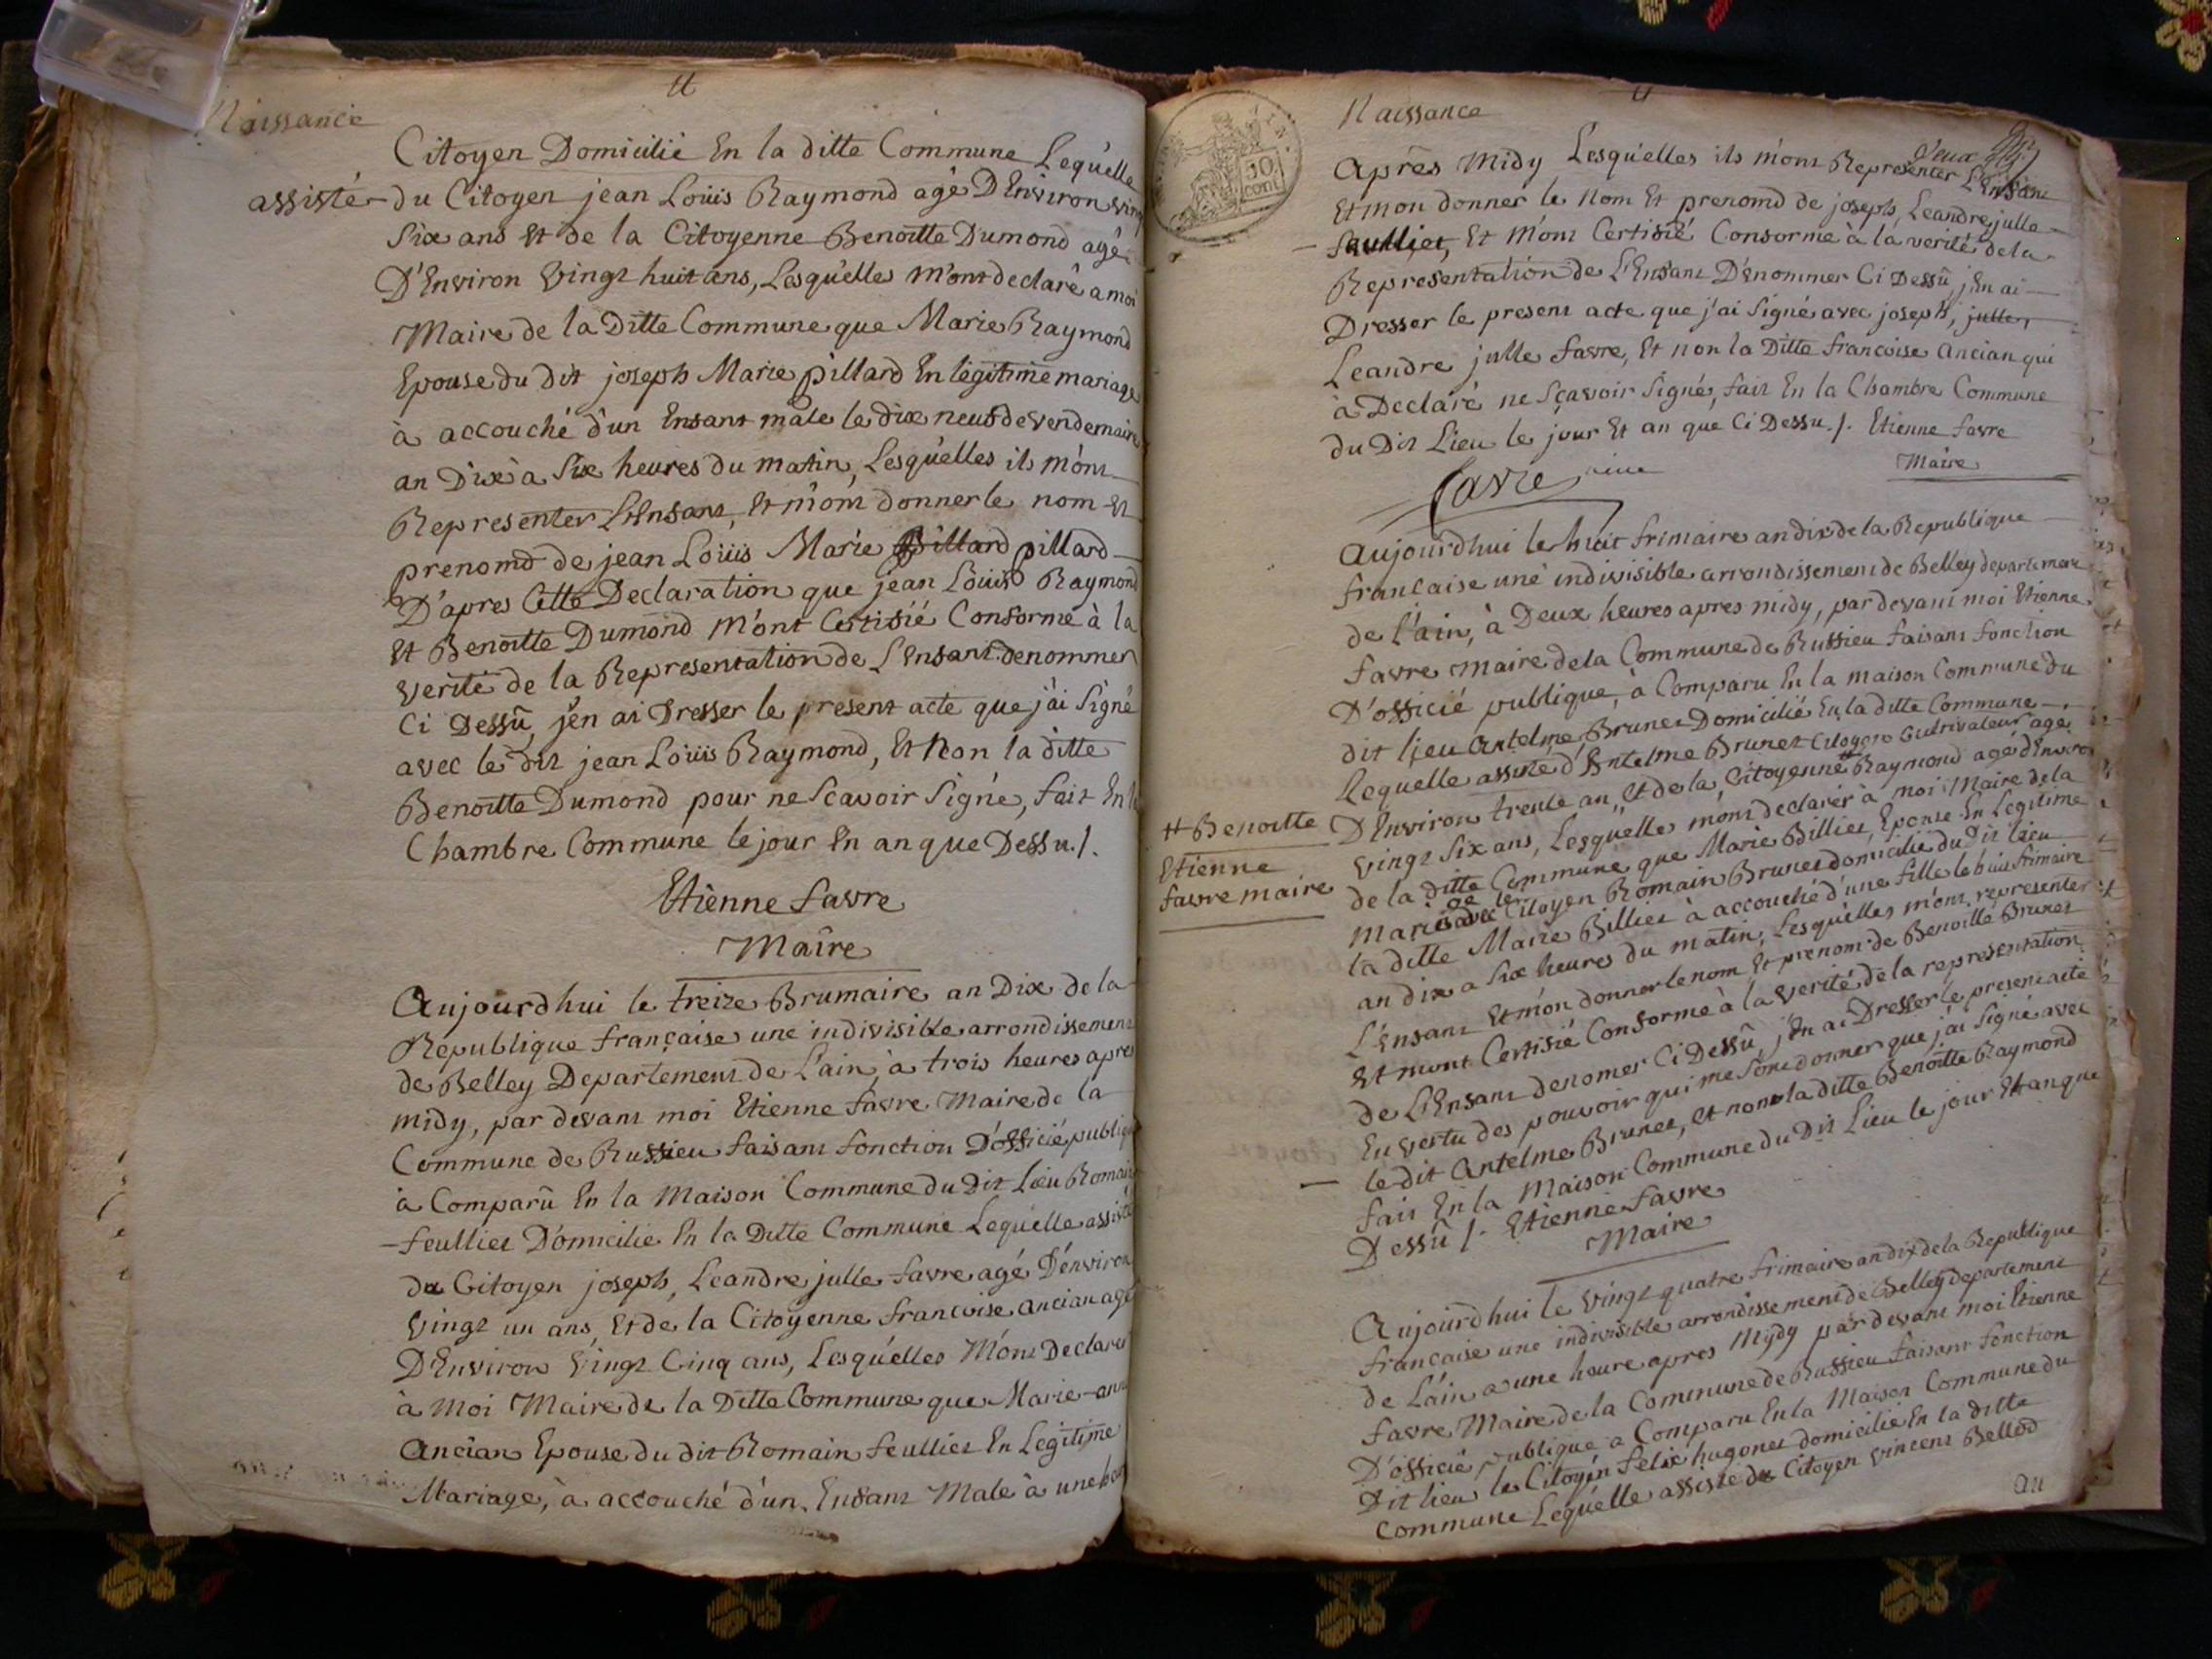 Naissance
Citoyen Domicilié En la ditte Commune Lequ'elle
assister du Citoyen jean Loüis Raymond agé D'Environ ving
Six ans Et de la Citoyenne Benoitte Dumond agé
D'Environ Vingt huit ans, Lesqu'elles m'ont declaré a moi
Maire de la Ditte Commune que Marie Raymond
Epouse du dit joseph Marie pillard En legitime mariage
à accouché d'un Enfant male le dix neuf de vendemaire
an Dix à Six heures du matin, Lesqu'elles ils m'ont
Representer L'Enfant, Et m'ont donner le nom Et
prenomd de jean Loüis Marie Billard pillard
D'apres Cette Declaration que jean Loüis Raymond
Et Benoitte Dumond m'ont Certifié Conforme à la
verité de la Representation de L'Enfant denommer
Ci Dessû, j'en ai Dresser le present acte que j'ai Signé
avec le dit jean Loüis Raymond, Et Non la ditte
Benoitte Dumond pour ne Scavoir Signé, fait En la
Chambre Commune le jour En an que Dessu./.
Etienne favre
Maire
Aujourdhui le treize Brumaire an Dix de la
Republique française une indivisible arrondissement
de Belley Departement de L'ain, à trois heures apres
midy, par devant moi Etienne favre Maire de la
Commune de Russieu faisant fonction D'officié publique
à Comparû En la Maison Commune du Dit Lieu Romain
feulliet Domicilié En la Ditte Commune Lequ'elle assisté
du Citoyen joseph, Leandre julle favre agé D'environ
Vingt un ans, Et de la Citoyenne francoise ancian agé
D'Environ Vingt Cinq ans, Lesqu'elles M'ont Declarer
à Moi Maire de la Ditte Commune que Marie-anne
Ancian Epouse du dit Romain feulliet En Legitime
Mariage, à accouché d'un Enfant Male à une heure
Naissance
deux
Aprês Midy Lesqu'elles ils m'ont Representer L'Enfant
Et mon donner le Nom Et prenomd de joseph, Leandre julle
feulliet, Et M'ont Certifié Conforme à la verité de la
Representation de L'Enfant Dénommer Ci Dessû, j'En ai
Dresser le present acte que j'ai Signé avec joseph, julle,
Leandre julle favre, Et non la Ditte francoise Ancian qui
à Declaré ne Sçavoir Signé, fait En la Chambre Commune
du Dit Lieu le jour Et an que Ci Dessu./. Etienne favre
Maire
favre
Aujourdhui le huit frimaire an dix de la Republique
francaise une indivisible arrondissement de Belley departement
de l'ain, à Deux heures apres midy, par devant moi Etienne
favre Maire de la Commune de Russieu faisant fonction
D'officié publique, à Comparu En la maison Commune du
dit lieu Antelme Brunet Domicilié En la ditte Commune
Lequelle assisté d'Antelme Brunet Citoyen Cultivateur agé
D'Environ trente an, Et de la Citoyenne # Raymond agé d'Environ
# Benoitte
Etienne
favre maire
Vingt Six ans, Lesquelle m'ont declarer à moi Maire de la
de la ditte Commune que Marie Billiet, Epouse En Legitime
Mariage avec le Citoyen Romain Brunet domicilié du Dit lieu
la ditte Marie Billiet à accouché d'une fille le huit frimaire
an dix a Six heures du matin, Lesqu'elles m'ont representer
L'Enfant Et m'on donner le nom Et prenom de Benoitte Brunet
Et m'ont Certifié Conforme à la verité de la representation
de L'Enfant denomer Ci Dessû, j'En ai Dresser le present acte
En vertu des pouvoir qui me Sont donner que j'ai Signé avec
le dit Antelme Brunet, Et non la ditte Benoitte Raymond
fait En la Maison Commune du Dit Lieu le jour Et an que
Dessû /. Etienne favre
Maire
Aujourdhui le Vingt quatre frimaire an dix de la Republique
francaise une indivisible arrondissement de Belley departement
de L'ain a une heure apres Midy par devant moi Etienne
favre Maire de la Commune de Russieu faisant fonction
D'officié publique a Comparu En la Maison Commune du
Dit lieu le Citoyen felix hugonet domicilié En la ditte
Commune Lequ'elle assisté du Citoyen vincent Bellod
au
10
cent